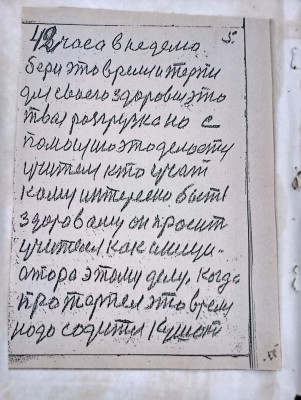 42 часа в неделю 5.
бери это время и терпи
для своего здоровья это
твая разгрузка но с
помошю это делость
учител кто учат
кому интересно быть
здоровому он просит
учителя как иници-
атора этому делу. Когда
протерпел это время
надо садится кушать